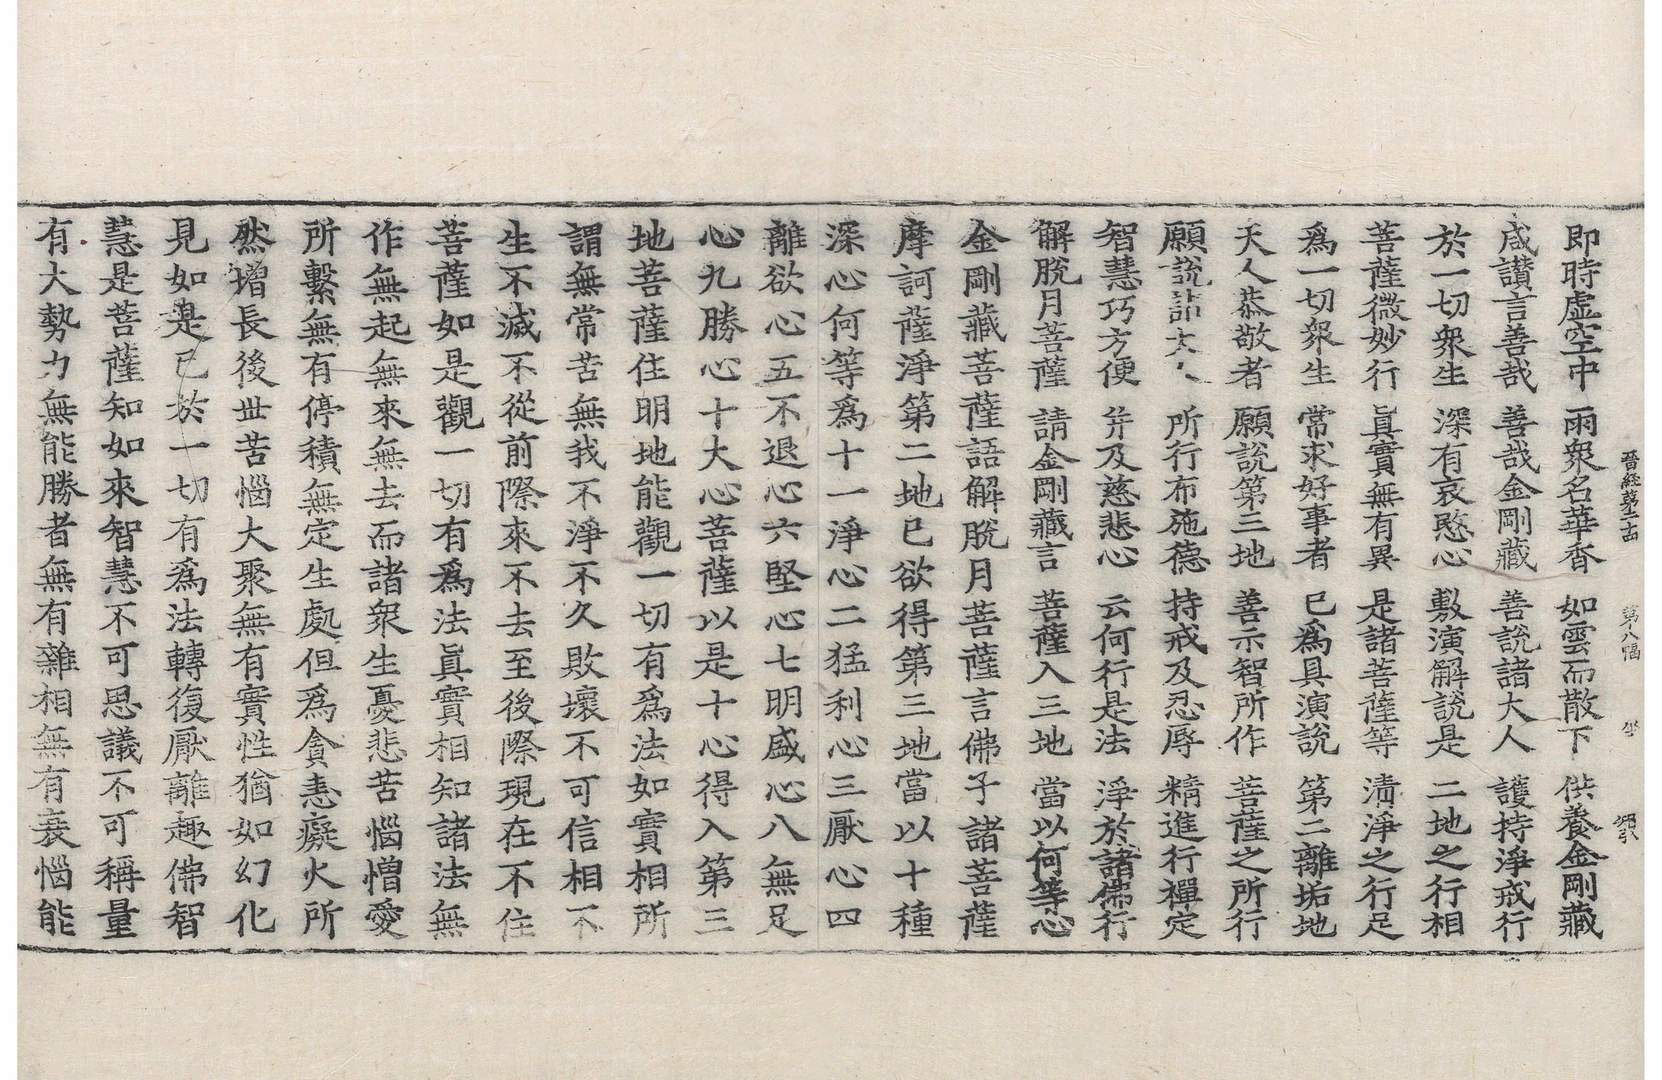 晉經蔓二十四 第八幅
即時虛空中 雨衆名華香 如雲而散下 供養金剛藏
咸讃言善哉 善哉金剛藏 善說諸大人 護持淨戒行
於一切衆生 深有哀愍心 敷演解說是 二地之行相
菩薩微妙行 眞實無有異 是諸菩薩等 清淨之行足
爲一切衆生 常求好事者 已爲具演說 第二離垢地
天人恭敬者 願說第三地 善示智所作 菩薩之所行
願說諸大人 所行布施德 持戒及忍辱 精進行禪定
智慧巧方便 并及慈悲心 云何行是法 淨於諸佛行
解脫月菩薩 請金剛藏言 菩薩入三地 當以何等心
金剛藏菩薩語解脫月菩薩言佛子諸菩薩
摩訶薩淨第二地已欲得第三地當以十種
深心何等爲十一淨心二猛利心三厭心四
離欲心五不退心六堅心七明盛心八無足
心九勝心十大心菩薩以是十心得入第三
地菩薩住明地能觀一切有爲法如實相所
謂無常苦無我不淨不久敗壞不可信相不
生不滅不從前際來不去至後際現在不住
菩薩如是觀一切有爲法眞實相知諸法無
作無起無來無去而諸衆生憂悲苦惱憎愛
所繫無有停積無定生處但爲貪恚癡火所
然增長後世苦惱大聚無有實性猶如幻化
見如是已於一切有爲法轉復厭離趣佛智
慧是菩薩知如來智慧不可思議不可稱量
有大勢力無能勝者無有雜相無有衰惱能